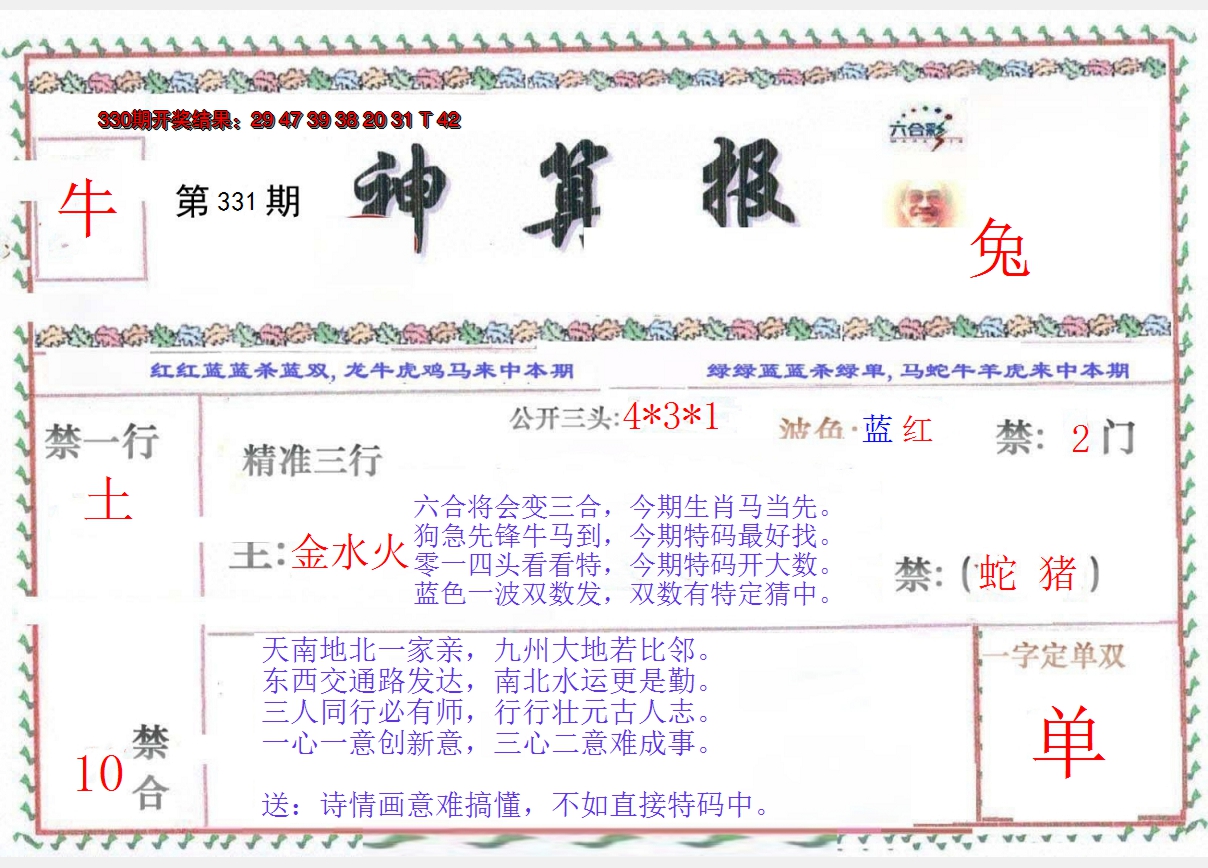 330期开奖结果：29 47 39 38 20 31 T 42
六合彩
牛
第 331 期
神算报
兔
红红蓝蓝杀蓝双,龙牛虎鸡马来中本期
绿绿蓝蓝杀绿单,马蛇牛羊虎来中本期
公开三头:4*3*1
波色:蓝 红
禁: 2 门
禁一行
土
精准三行
主:金水火
六合将会变三合，今期生肖马当先。
狗急先锋牛马到，今期特码最好找。
零一四头看看特，今期特码开大数。
蓝色一波双数发，双数有特定猜中。
禁:(蛇 猪)
天南地北一家亲，九州大地若比邻。
东西交通路发达，南北水运更是勤。
三人同行必有师，行行壮元古人志。
一心一意创新意，三心二意难成事。
送：诗情画意难搞懂，不如直接特码中。
10
禁合
一字定单双
单